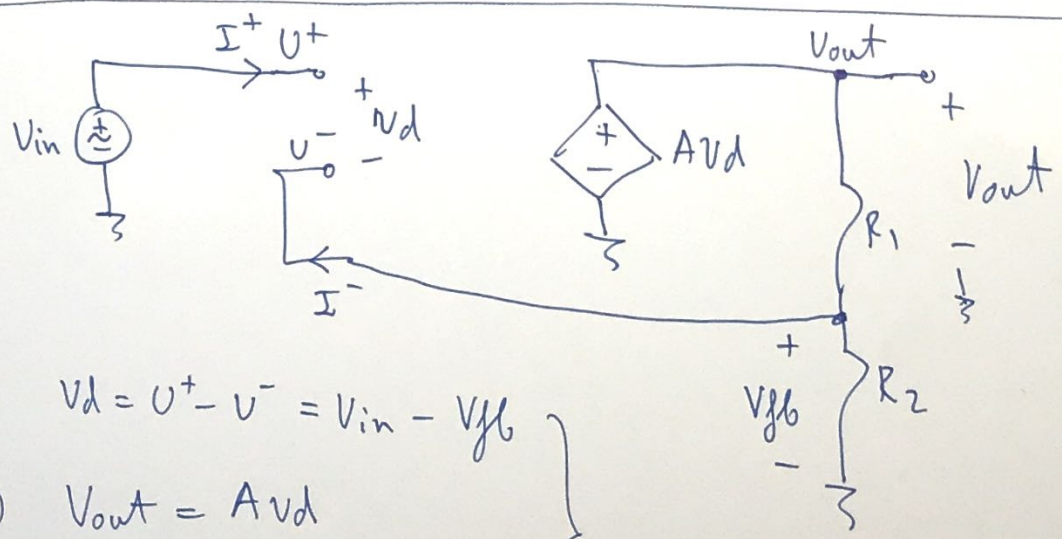 I⁺ U⁺
Vout
Vin
+
-
+
Vd
-
U⁻
+
-
AVd
+
Vout
-
R₁
I⁻
+
Vfb
-
R₂
Vd = U⁺ - U⁻ = Vin - Vfb
Vout = A Vd